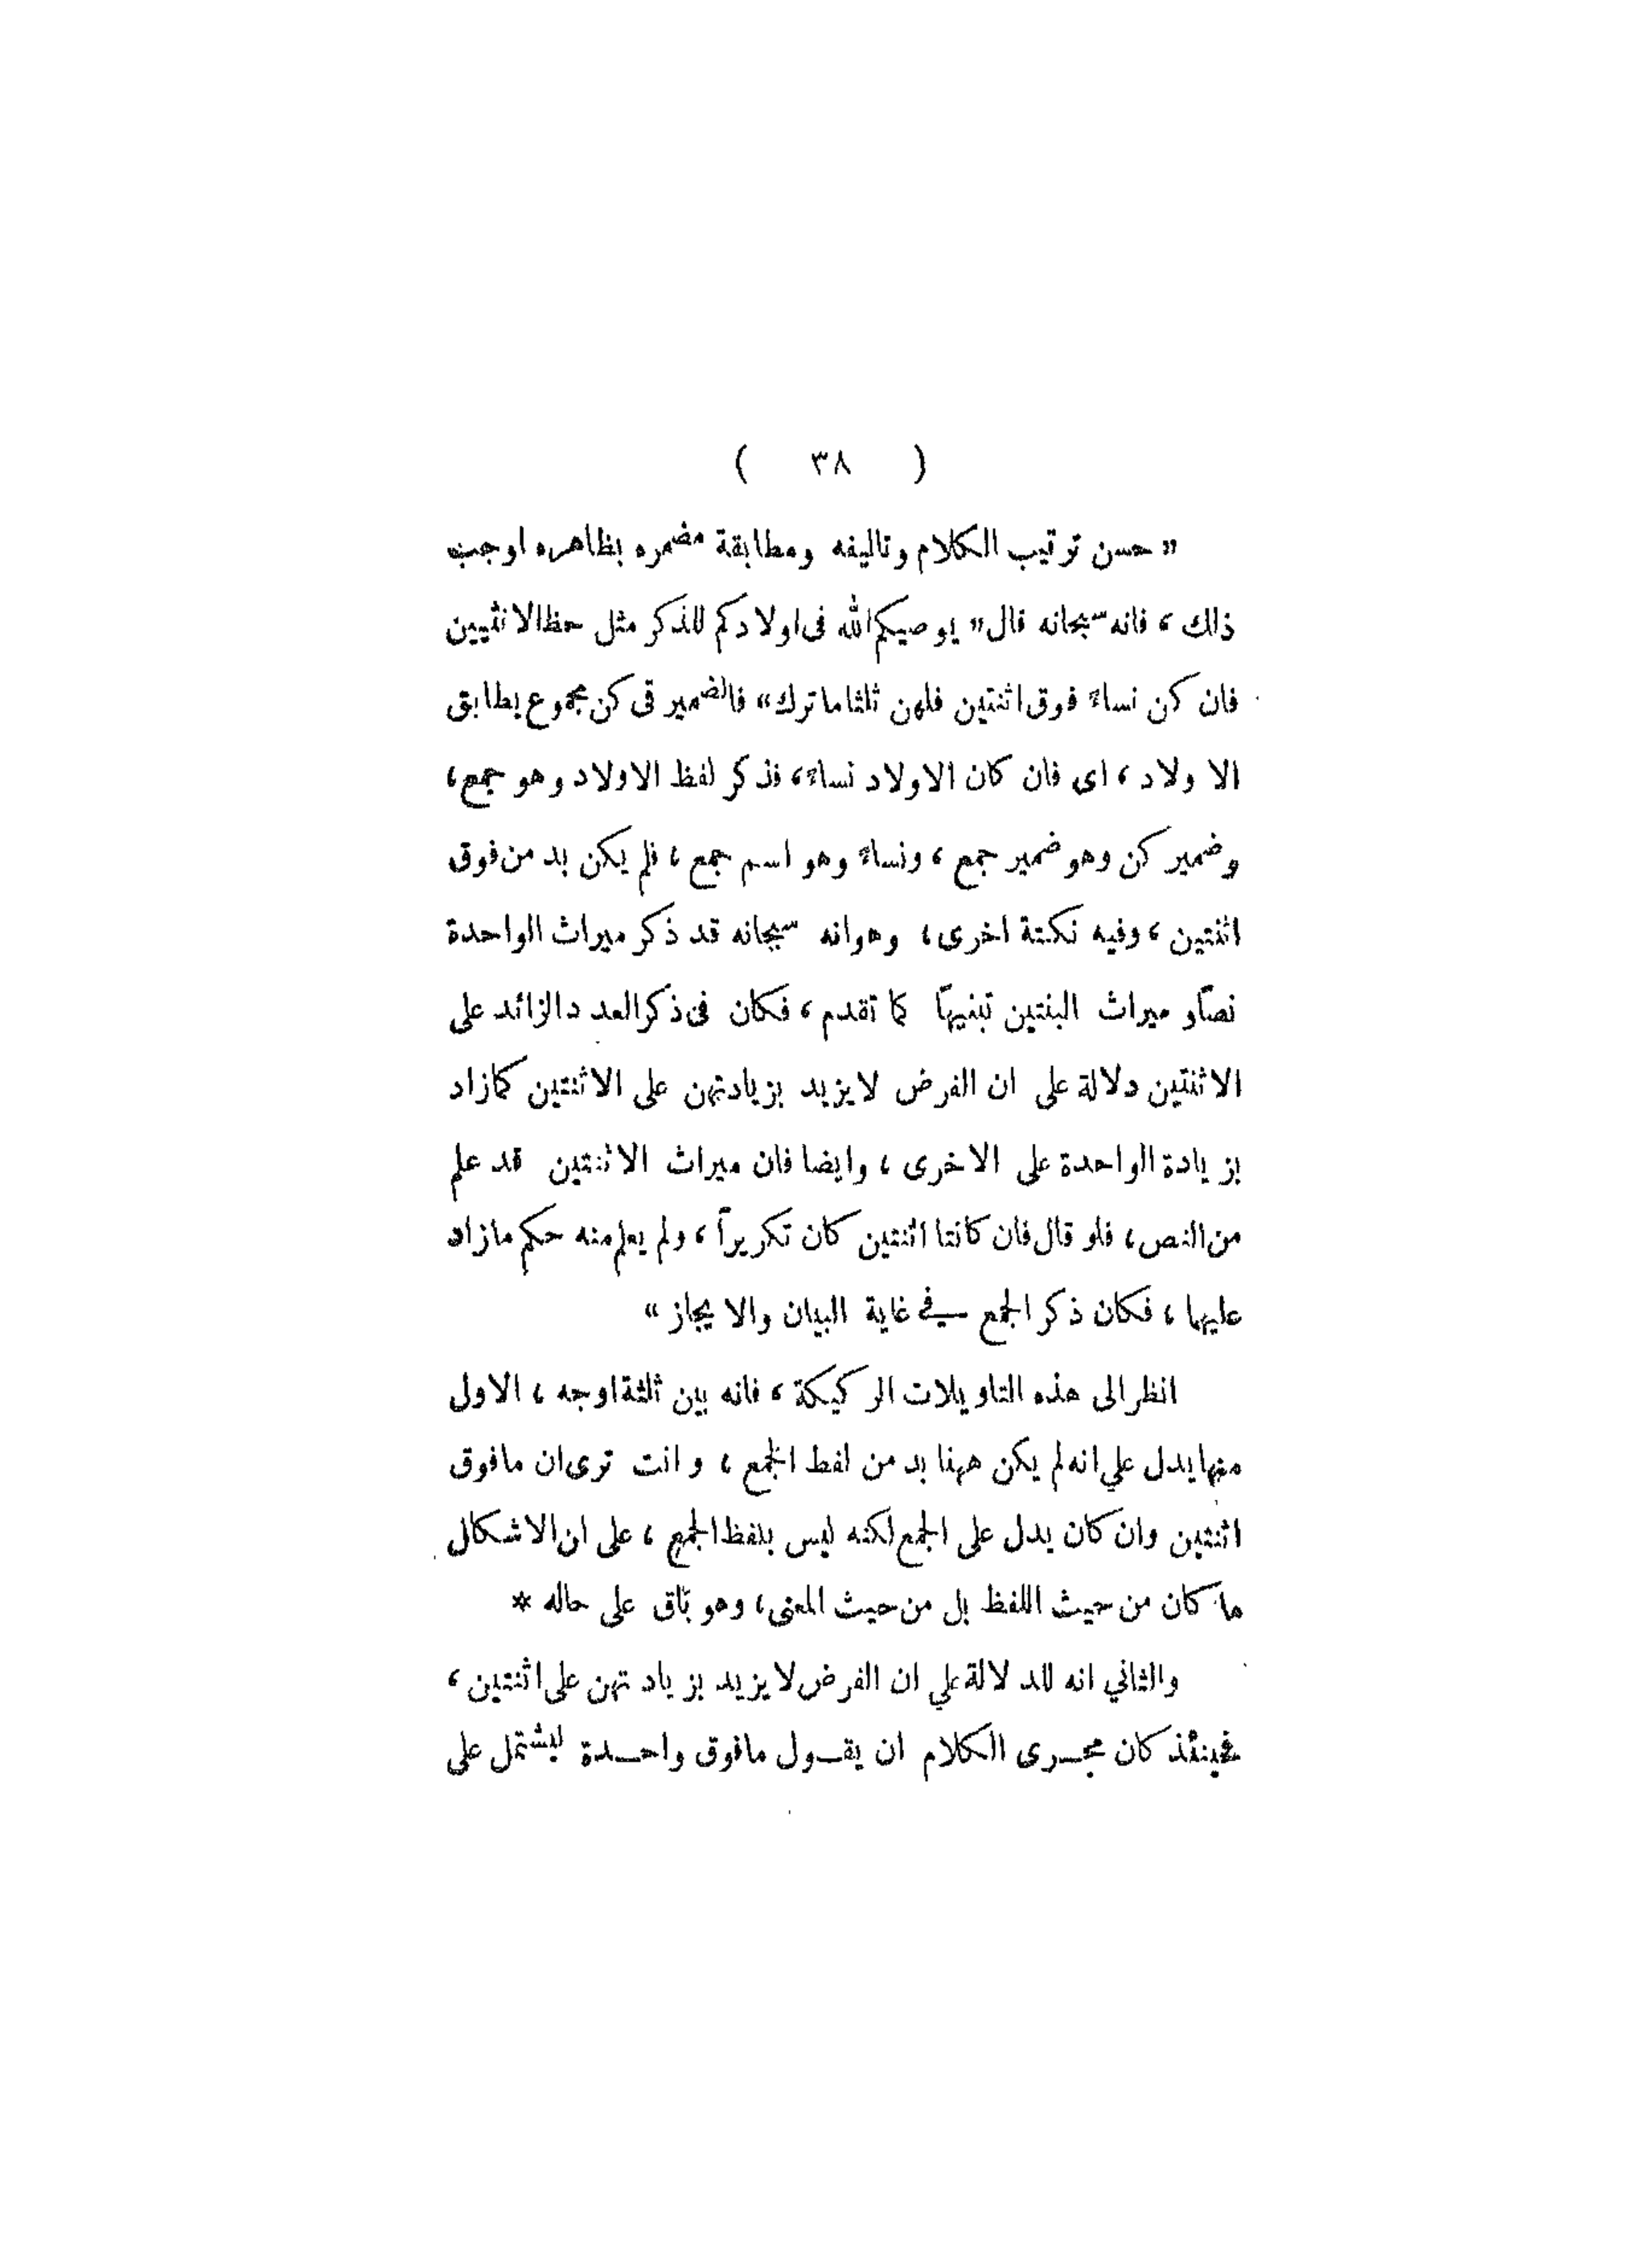 ( ٣٨ )
« حسن ترتيب الكلام وتاليفه ومطابقة مضمره بظاهره اوجب
ذلك ، فانه سبحانه قال « يوصيكم الله فى اولادكم للذكر مثل حظ الانثيين
فان كن نساءً فوق اثنتين فلهن ثلثا ماترك » فالضمير فى كن مجموع يطابق
الا ولاد ، اى فان كان الاولاد نساءً ، فذكر لفظ الاولاد وهو جمع ،
وضمير كن وهو ضمير جمع ، ونساءً وهو اسم جمع ، فلم يكن بد من فوق
اثنتين ، وفيه نكتة اخرى ، وهو انه سبحانه قد ذكر ميراث الواحدة
نصاً و ميراث البنتين تبنيهاً كما تقدم ، فكان فى ذكر العدد الزائد على
الاثنتين دلالة على ان الفرض لا يزيد بزيادتهن على الاثنتين كمازاد
بزيادة الواحدة على الاخرى ، وايضا فان ميراث الاثنتين قد علم
من النص ، فلو قال فان كانتا اثنتين كان تكريراً ، ولم يعلم منه حكم مازاد
عليها ، فكان ذكر الجمع في غاية البيان والا يجاز »
انظر الى هذه التاويلات الركيكة ، فانه بين ثلثة اوجه ، الاول
منها يدل علي انه لم يكن ههنا بد من لفط الجمع ، و انت ترى ان مافوق
اثنتين وان كان يدل على الجمع لكنه ليس بلفظ الجمع ، على ان الاشكال
ما كان من حيث اللفظ بل من حيث المعنى ، وهو باق على حاله *
والثاني انه للد لالة علي ان الفرض لا يزيد بزيادتهن على اثنتين ،
فحينئذ كان مجرى الكلام ان يقول مافوق واحدة ليشتمل على